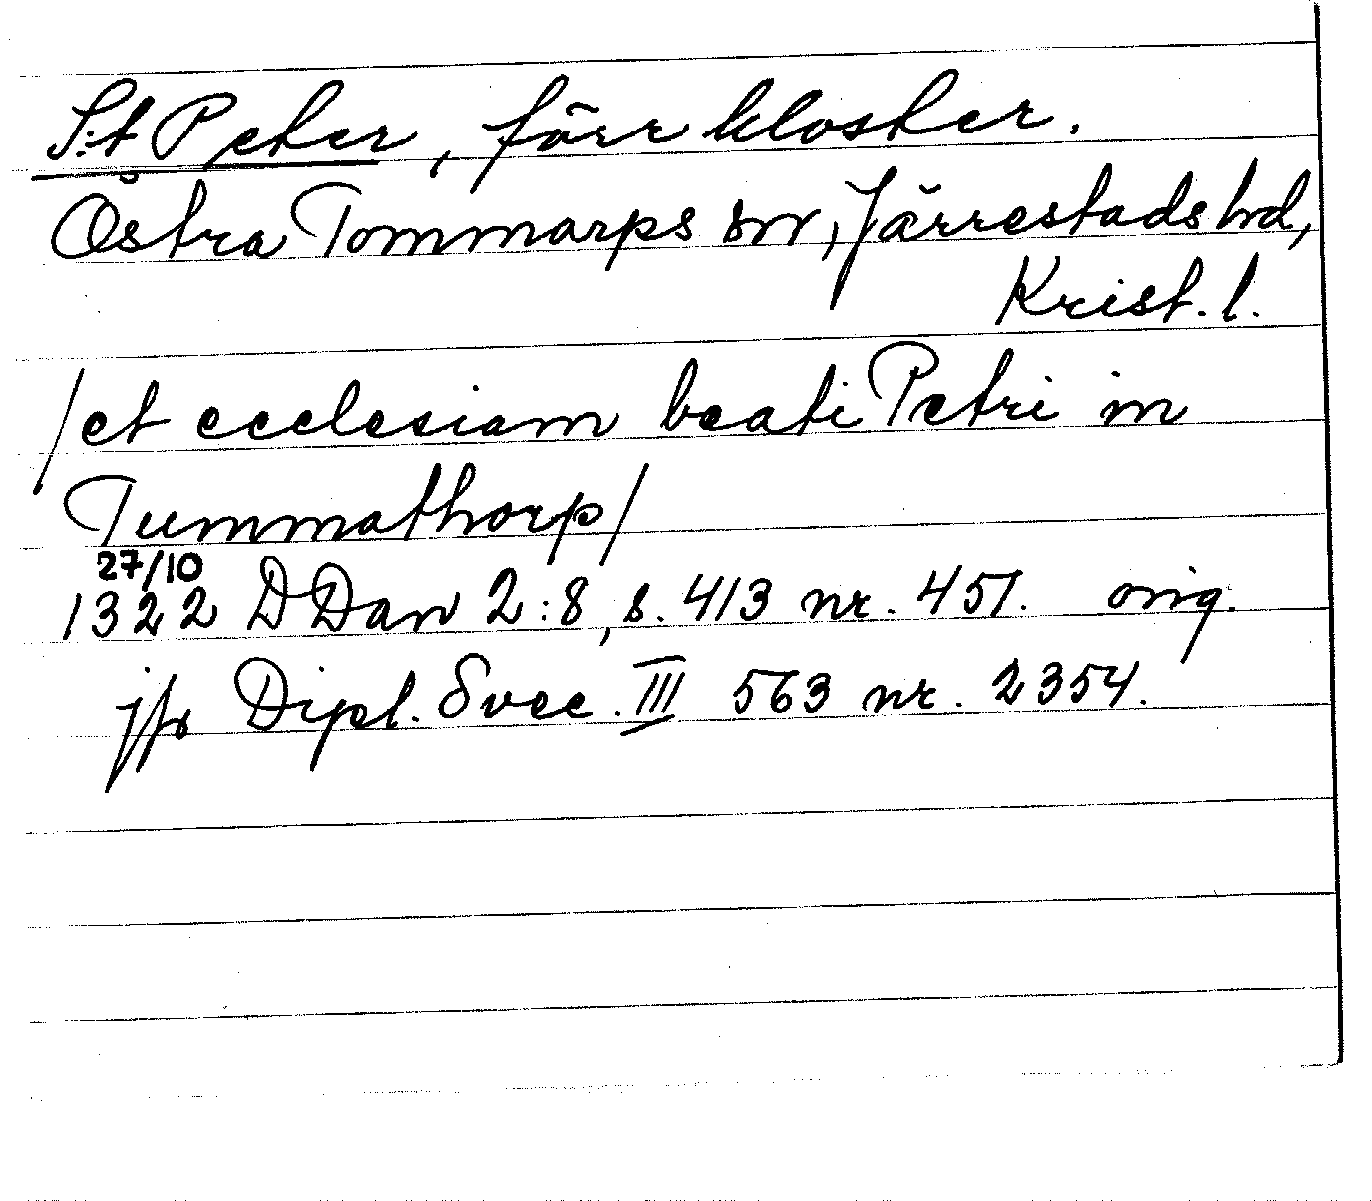 S:t Peter, förr kloster.
Östra Tommarps sn, Järrestads hd,
Krist. l.
/et ecclesiam beati Petri in
Tummathorp/
27/10
1322 DDan 2:8, s. 413 nr. 451. orig.
jfr Dipl. Svec. III 563 nr. 2354.